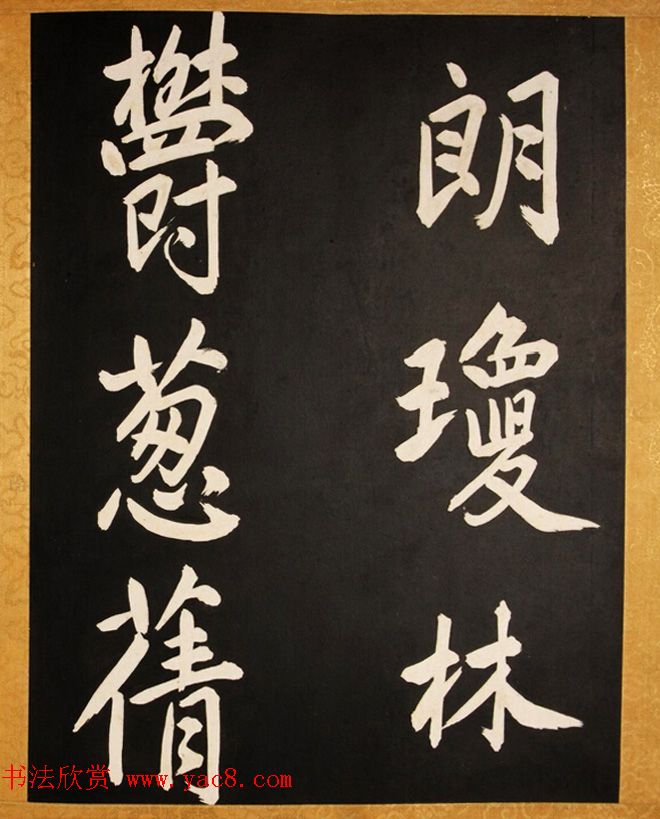 朗瓊林
鬱葱蒨
书法欣赏 www.yac8.com